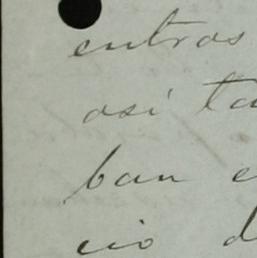 entros
así ta
ban e
cio d